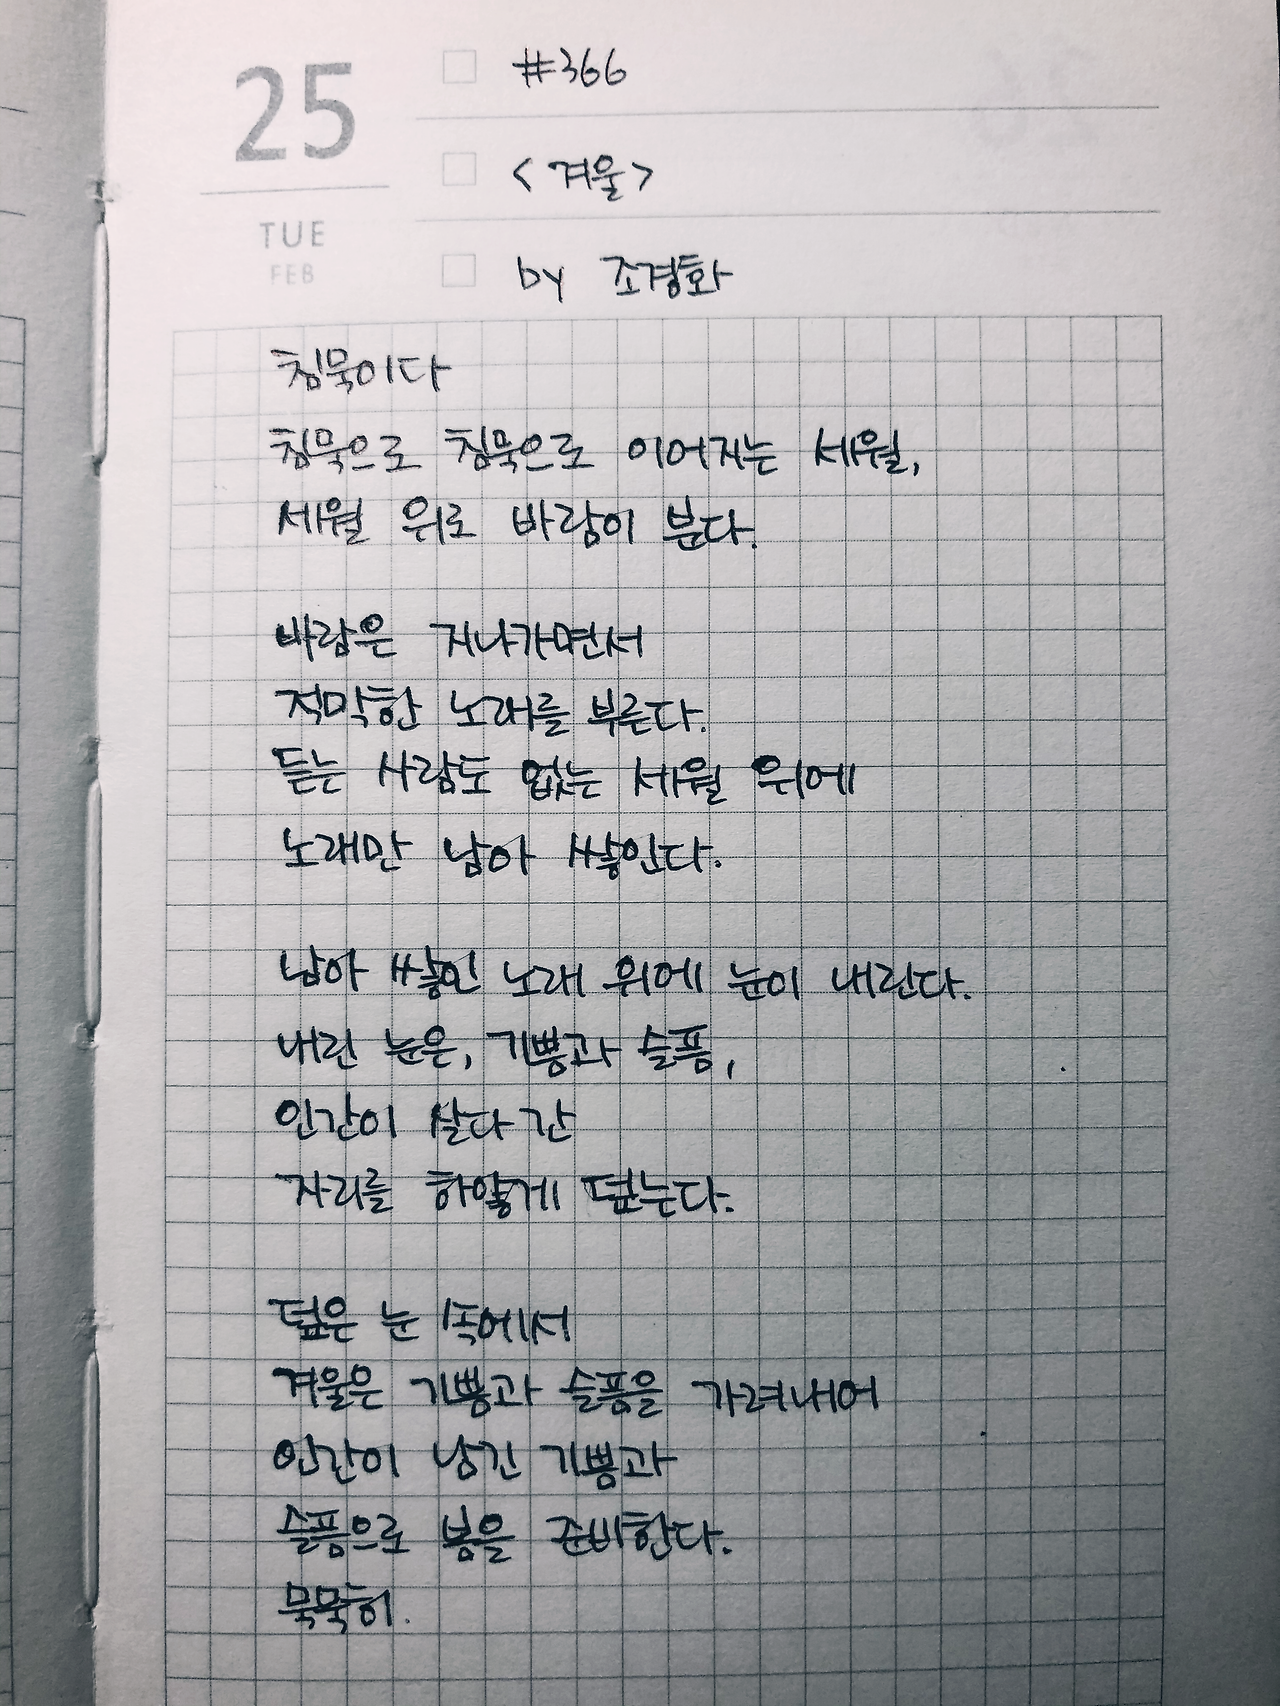 25
TUE
FEB
#366
<겨울>
by 조경화
침묵이다
침묵으로 침묵으로 이어지는 세월,
세월 위로 바람이 분다.
바람은 지나가면서
적막한 노래를 부른다.
듣는 사람도 없는 세월 위에
노래만 남아 쌓인다.
남아 쌓인 노래 위에 눈이 내린다.
내린 눈은, 기쁨과 슬픔,
인간이 살다 간
자리를 하얗게 덮는다.
덮은 눈 속에서
겨울은 기쁨과 슬픔을 가려내어
인간이 남긴 기쁨과
슬픔으로 봄을 준비한다.
묵묵히.